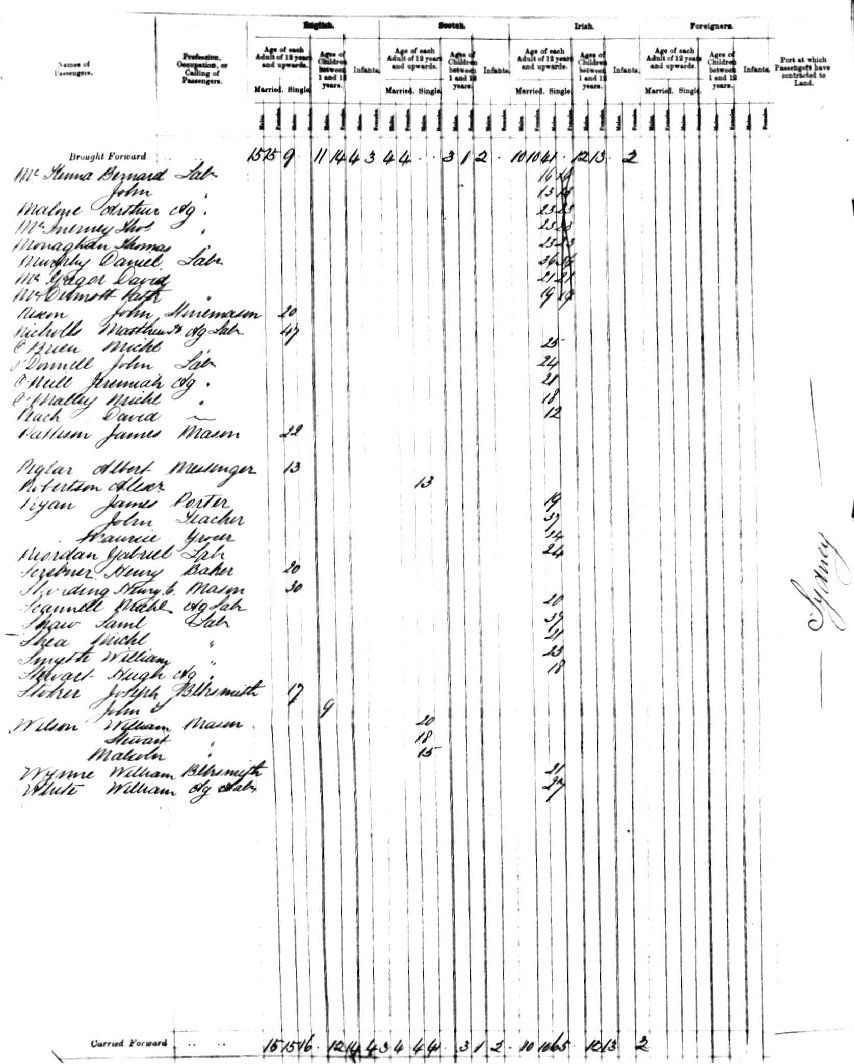 English. Scotch. Irish. Foreigners.
Names of Passengers. Profession, Occupation, or Calling of Passengers. Age of each Adult of 12 years and upwards. Ages of Children between 1 and 12 years. Infants. Age of each Adult of 12 years and upwards. Ages of Children between 1 and 12 years. Infants. Age of each Adult of 12 years and upwards. Ages of Children between 1 and 12 years. Infants. Age of each Adult of 12 years and upwards. Ages of Children between 1 and 12 years. Infants. Port at which Passengers have contracted to Land.
Married. Single. Married. Single. Married. Single. Married. Single.
Brought Forward 15 15 9 11 14 4 3 4 4 3 1 2 10 10 41 12 13 2
McKenna Bernard Labr 16
John " 13
Malone Arthur Ag " 23
McInerney Thos " 23
Monaghan Thomas " 23
Murphy Daniel Labr
McGregor David 21
McDermott Patk " 19
Nixon John Stonemason 20
Nicholls Matthew Ag Labr 47
O'Brien Michl " 25
O'Donnell John Labr 24
O'Neill Jeremiah Ag "
O'Malley Michl " 18
Peach David 12
Pattison James Mason 22
Peglar Albert Messenger 13
Robertson Alexr 13
Ryan James Porter 19
John Teacher
Maurice Grocer
Riordan Gabriel Labr 24
Henry Baker 20
Henry C. Mason 30
Scannell Michl Ag Labr 20
Shaw Saml Labr
Shea Michl 21
Smyth William " 23
Stewart Hugh Ag " 18
Stoker Joseph Blksmith 17
John 9
Wilson William Mason 20
Stewart 18
Malcolm " 15
Wynne William Blksmith 21
White William Ag Labr 27
Sydney
Carried Forward 15 15 16 12 14 4 3 4 4 4 3 1 2 10 10 65 12 13 2